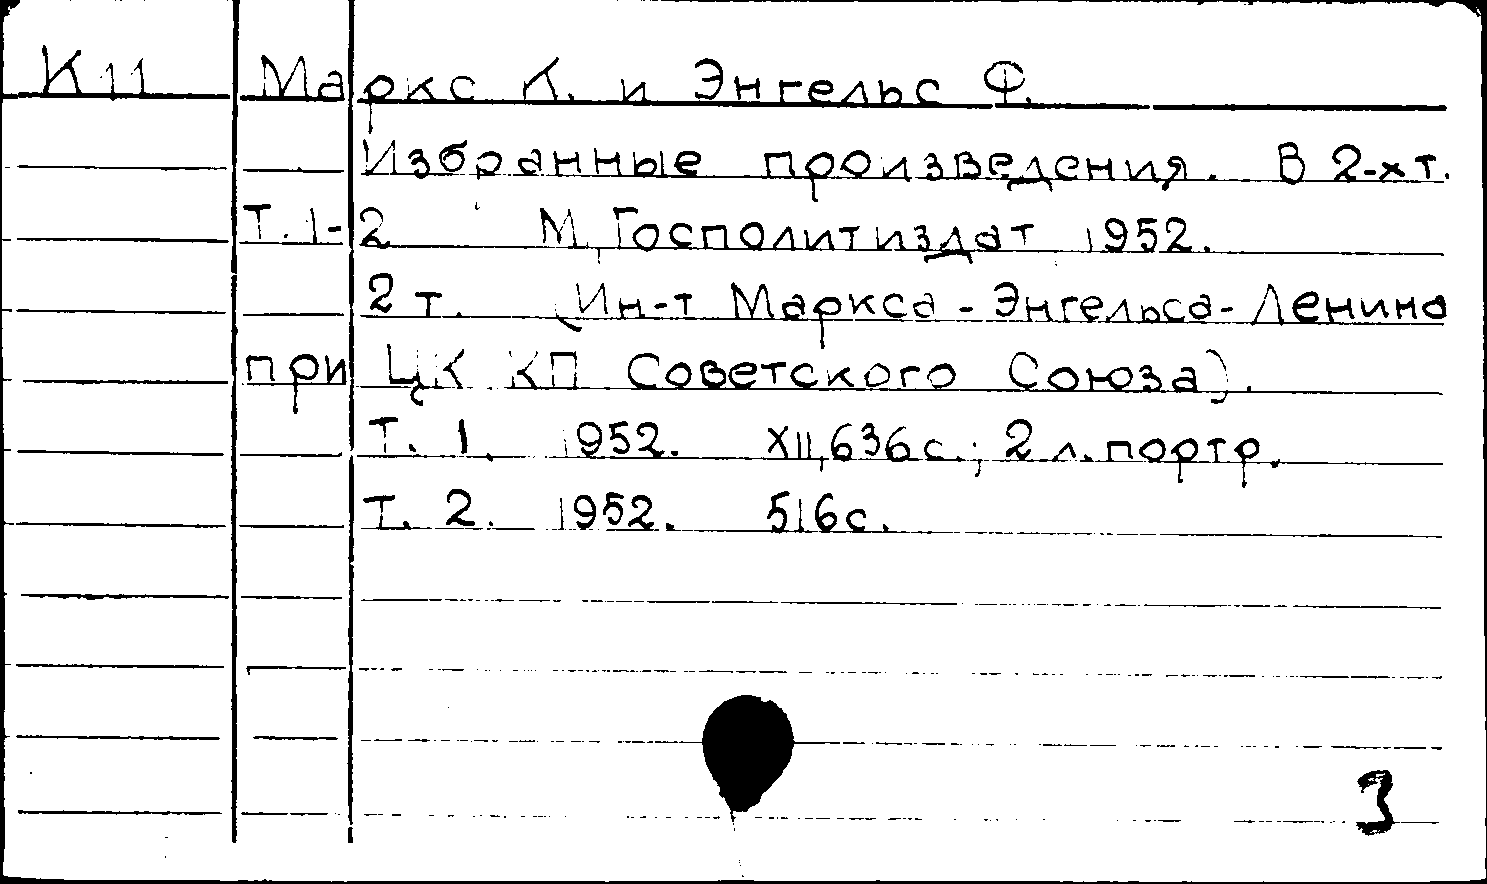 К11 Маркс К. и Энгельс Ф.
Избранные произведения. В 2-х т.
Т. 1-2 М, Госполитиздат 1952.
2 т. (Ин-т Маркса-Энгельса-Ленина
при ЦК КП Советского Союза).
Т. 1. 1952. XII, 636 с.; 2 л. портр.
Т. 2. 1952. 516 с.
3